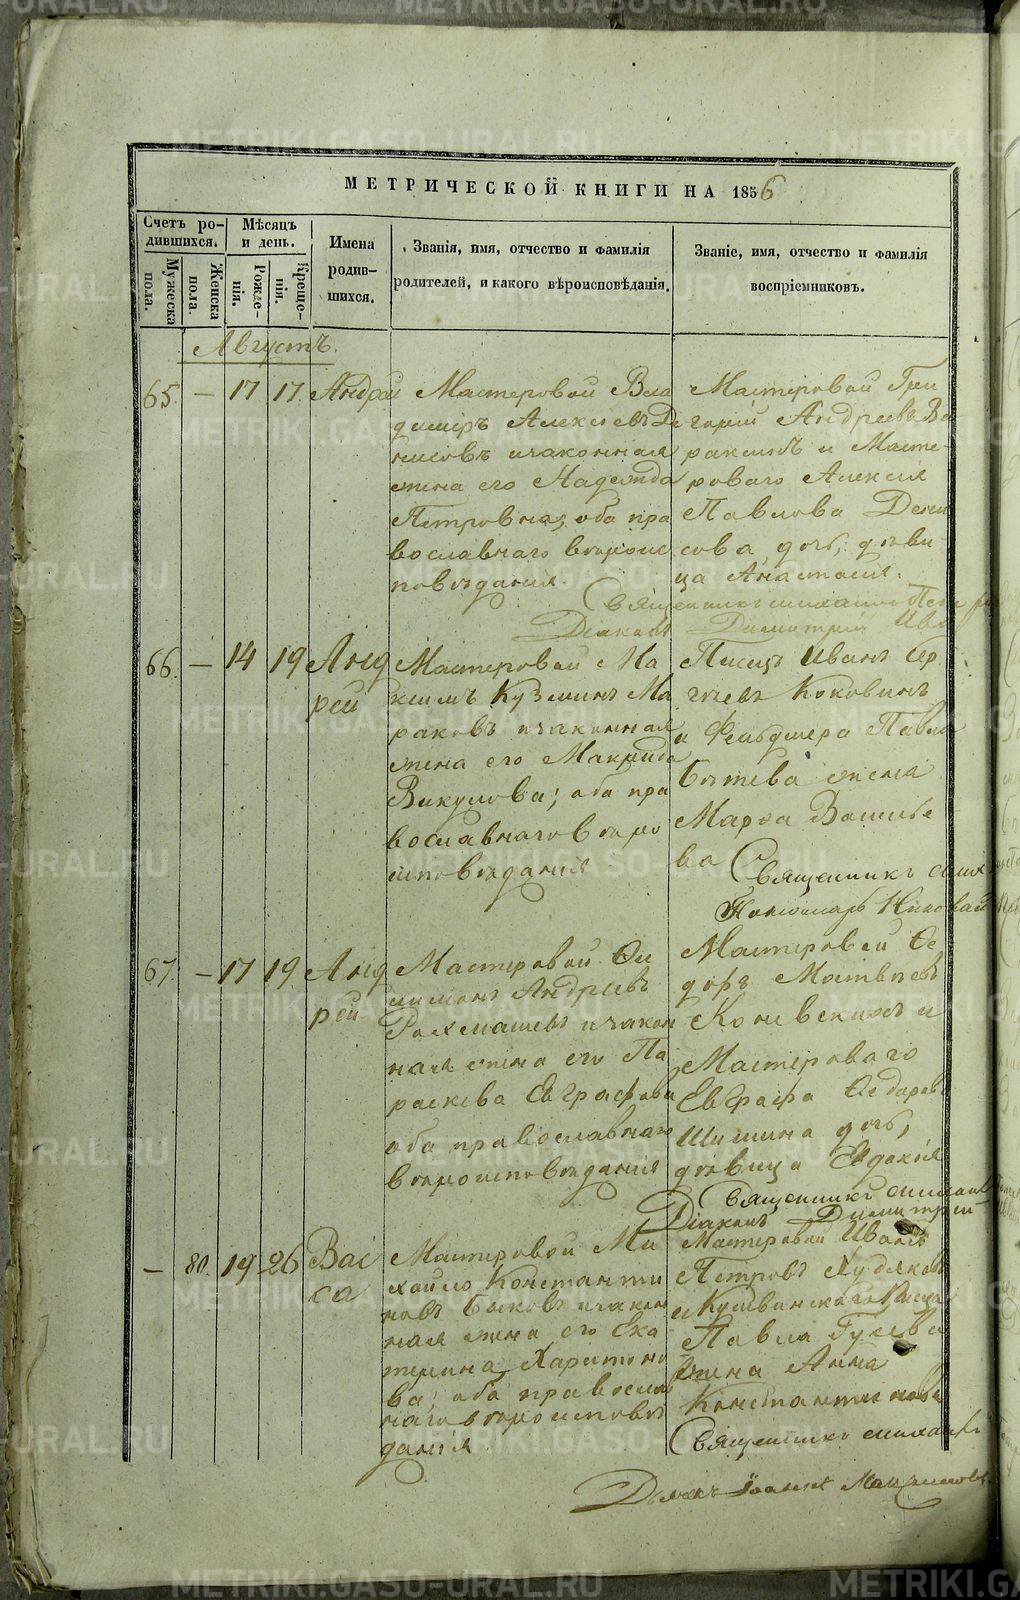 МЕТРИЧЕСКОЙ КНИГИ НА 1856
Счетъ ро-
дившихся.
Мужеска
пола.
Женска
пола.
Мѣсяцъ
и день.
Рожде-
нія.
Креще-
нія.
Имена
родив-
шихся.
Званія, имя, отчество и фамилія
родителей, и какого вѣроисповѣданія.
Званіе, имя, отчество и фамилія
воспріемниковъ.
Августъ.
65. — 17 17 Андрей
Мастеровой Вла
димиръ Алексѣевъ Де
нисовъ и законная
жена его Надежда
Петровна, оба пра
вославнаго вѣроис
повѣданія.
Мастеровой Гри
горій Андреевъ
и Масте-
роваго Алексія
Павлова Дени
сова дочь, дѣви
ца Анастасія.
Священникъ Михаилъ
Діаконъ Димитрій
66. — 14 19 Анд
рей
Мастеровой Ма
ксимъ Кузминъ Ма
раковъ и законная
жена его Макрида
Викулова; оба пра
вославнаго вѣро
исповѣданія
Писецъ Иванъ
Коковинъ
и Фельдшера Павла
жена
Марѳа Василье
ва
Священникъ Мих
Пономарь Николай
67. — 17 19 Анд
рей
Мастеровой Фи
лимонъ Андреевъ
и закон
ная жена его Па
раскева Евграфова
оба православнаго
вѣроисповѣданія
Мастеровой Ѳе
доръ Матвѣевъ
и
Мастероваго
Евграфа Ѳедорова
Шишина дочь,
дѣвица Евдокія
Священникъ Михаил
Діаконъ Димитрій
— 80. 19 26 Вас
са
Мастеровой Ми
хайло Константи
новъ Быковъ и закон
ная жена его Ека
терина Харитоно
ва; оба православ
наго вѣроисповѣ
данія
Мастеровой Иванъ
Петровъ Худяковъ
и Кушвинскаго
Павла Гусева
жена Анна
Константинова
Священникъ Михаил
Дьячекъ Іоаннъ
METRIKI.GASO-URAL.RU